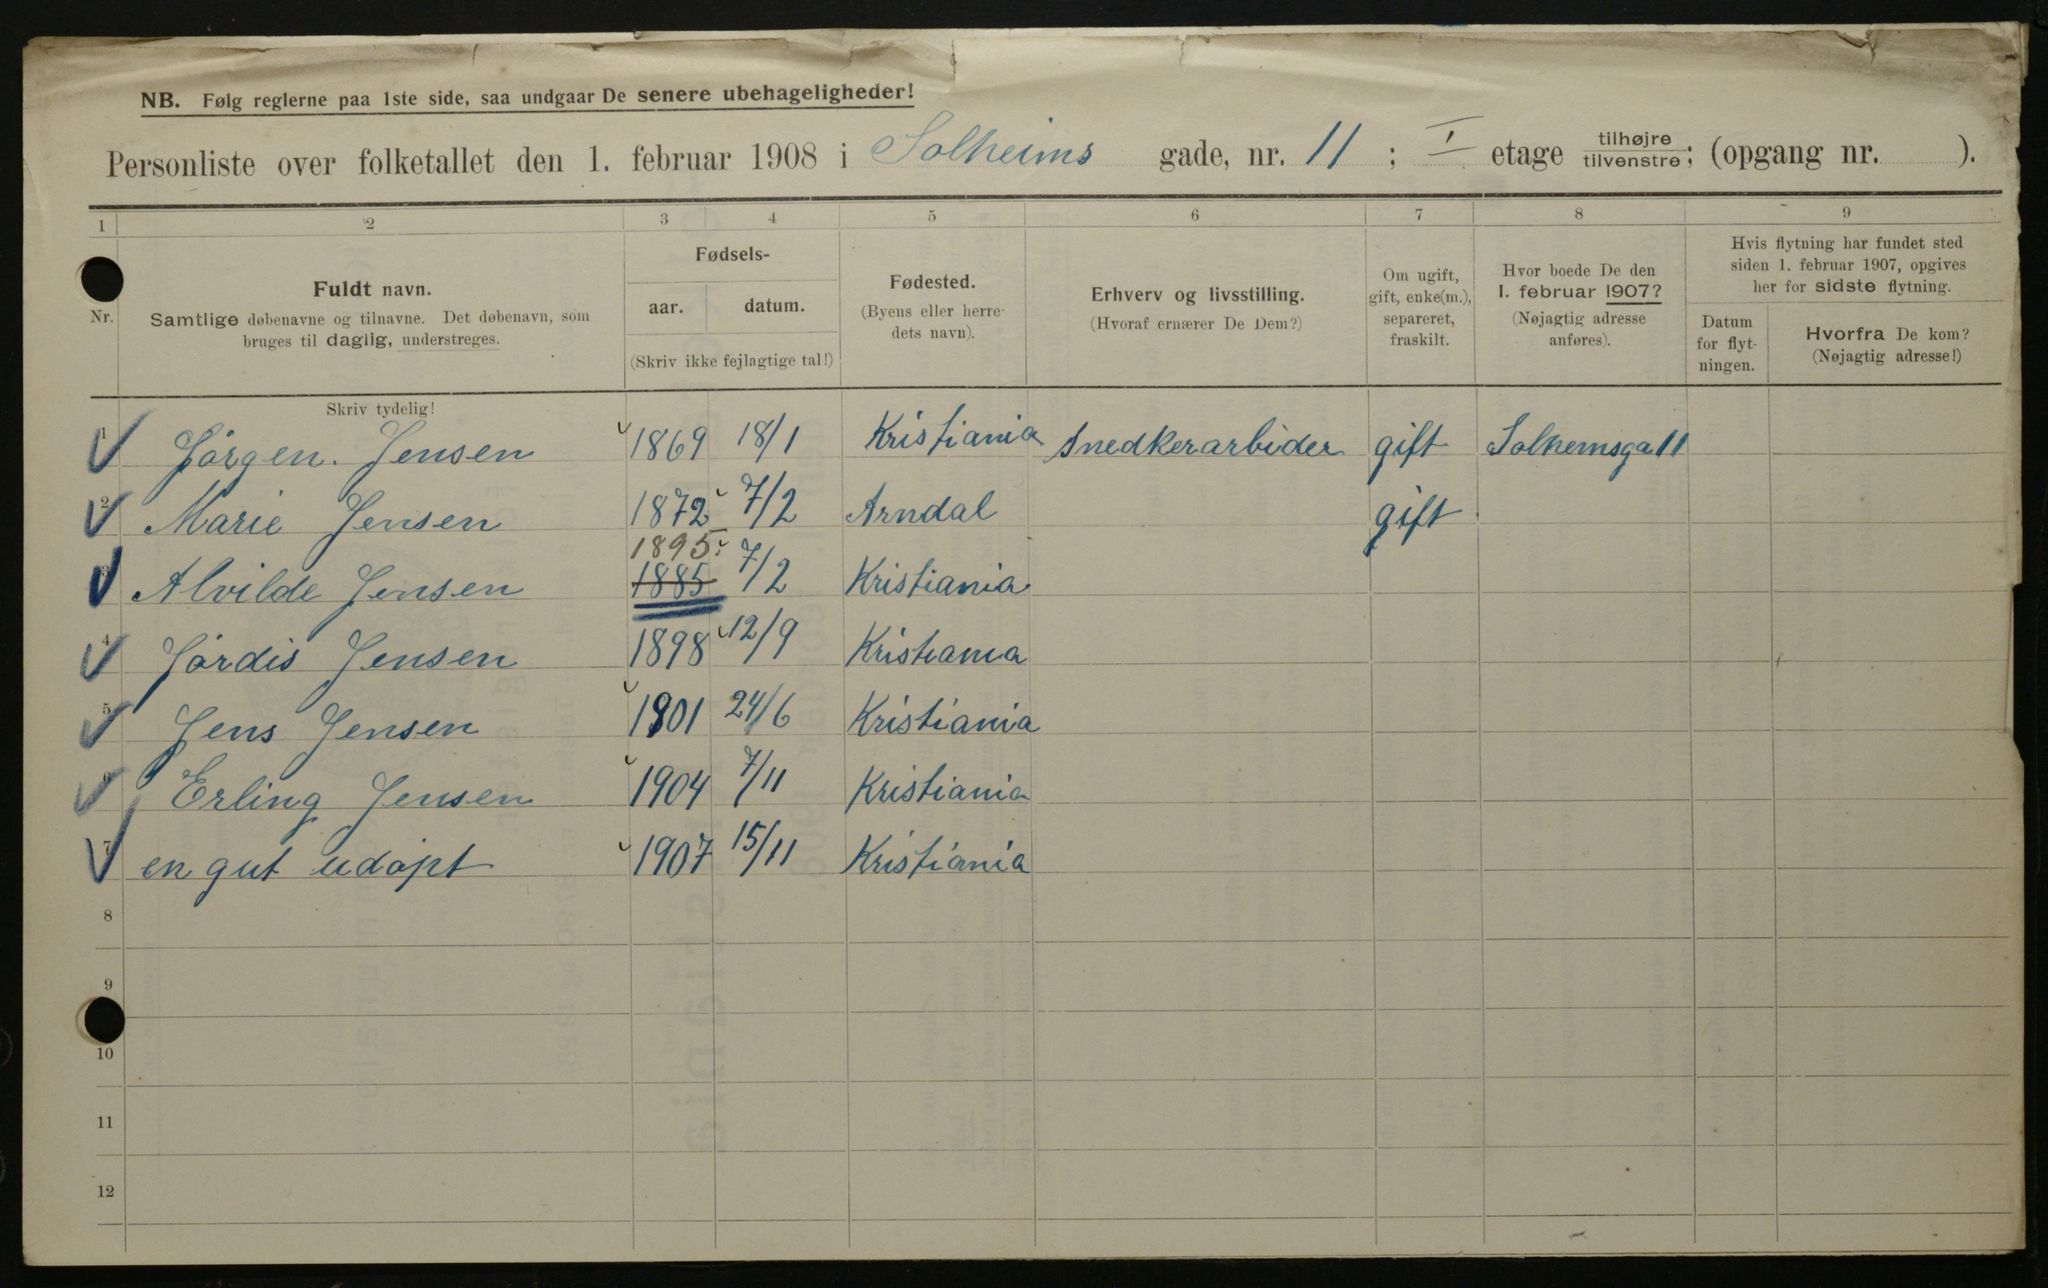 NB. Følg reglerne paa 1ste side, saa undgaar De senere ubehageligheder!
Personliste over folketallet den 1. februar 1908 i Solheims gade, nr. 11 ; I etage tilhøjre tilvenstre; (opgang nr. ).
1 2 3 4 5 6 7 8 9
Nr.
Fuldt navn.
Samtlige døbenavne og tilnavne. Det døbenavn, som
bruges til daglig, understreges.
Fødsels-
aar. datum.
(Skriv ikke fejlagtige tal!)
Fødested.
(Byens eller herre-
dets navn).
Erhverv og livsstilling.
(Hvoraf ernærer De Dem?)
Om ugift,
gift, enke(m.),
separeret,
fraskilt.
Hvor boede De den
1. februar 1907?
(Nøjagtig adresse
anføres).
Hvis flytning har fundet sted
siden 1. februar 1907, opgives
her for sidste flytning.
Datum
for flyt-
ningen.
Hvorfra De kom?
(Nøjagtig adresse!)
Skriv tydelig!
1 Jørgen. Jensen 1869 18/1 Kristiania Snedkerarbider gift Solhemsga 11
2 Marie Jensen 1872 7/2 Arndal gift
1895
3 Alvilde Jensen 1885 7/2 Kristiania
4 Jørdis Jensen 1898 12/9 Kristiania
5 Jens Jensen 1901 24/6 Kristiania
6 Erling Jensen 1904 7/11 Kristiania
7 en gut udøpt 1907 15/11 Kristiania
8
9
10
11
12